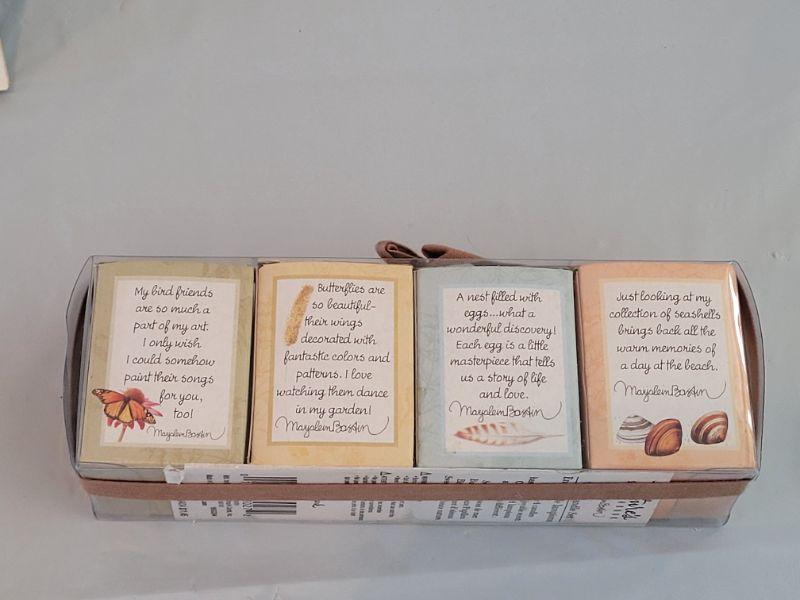 My bird friends
are so much a
part of my art.
I only wish
I could somehow
paint their songs
for you,
too!
Marjolein Bastin
Butterflies are
so beautiful-
their wings
decorated with
fantastic colors and
patterns. I love
watching them dance
in my garden!
Marjolein Bastin
A nest filled with
eggs...what a
wonderful discovery!
Each egg is a little
masterpiece that tells
us a story of life
and love.
Marjolein Bastin
Just looking at my
collection of seashells
brings back all the
warm memories of
a day at the beach.
Marjolein Bastin